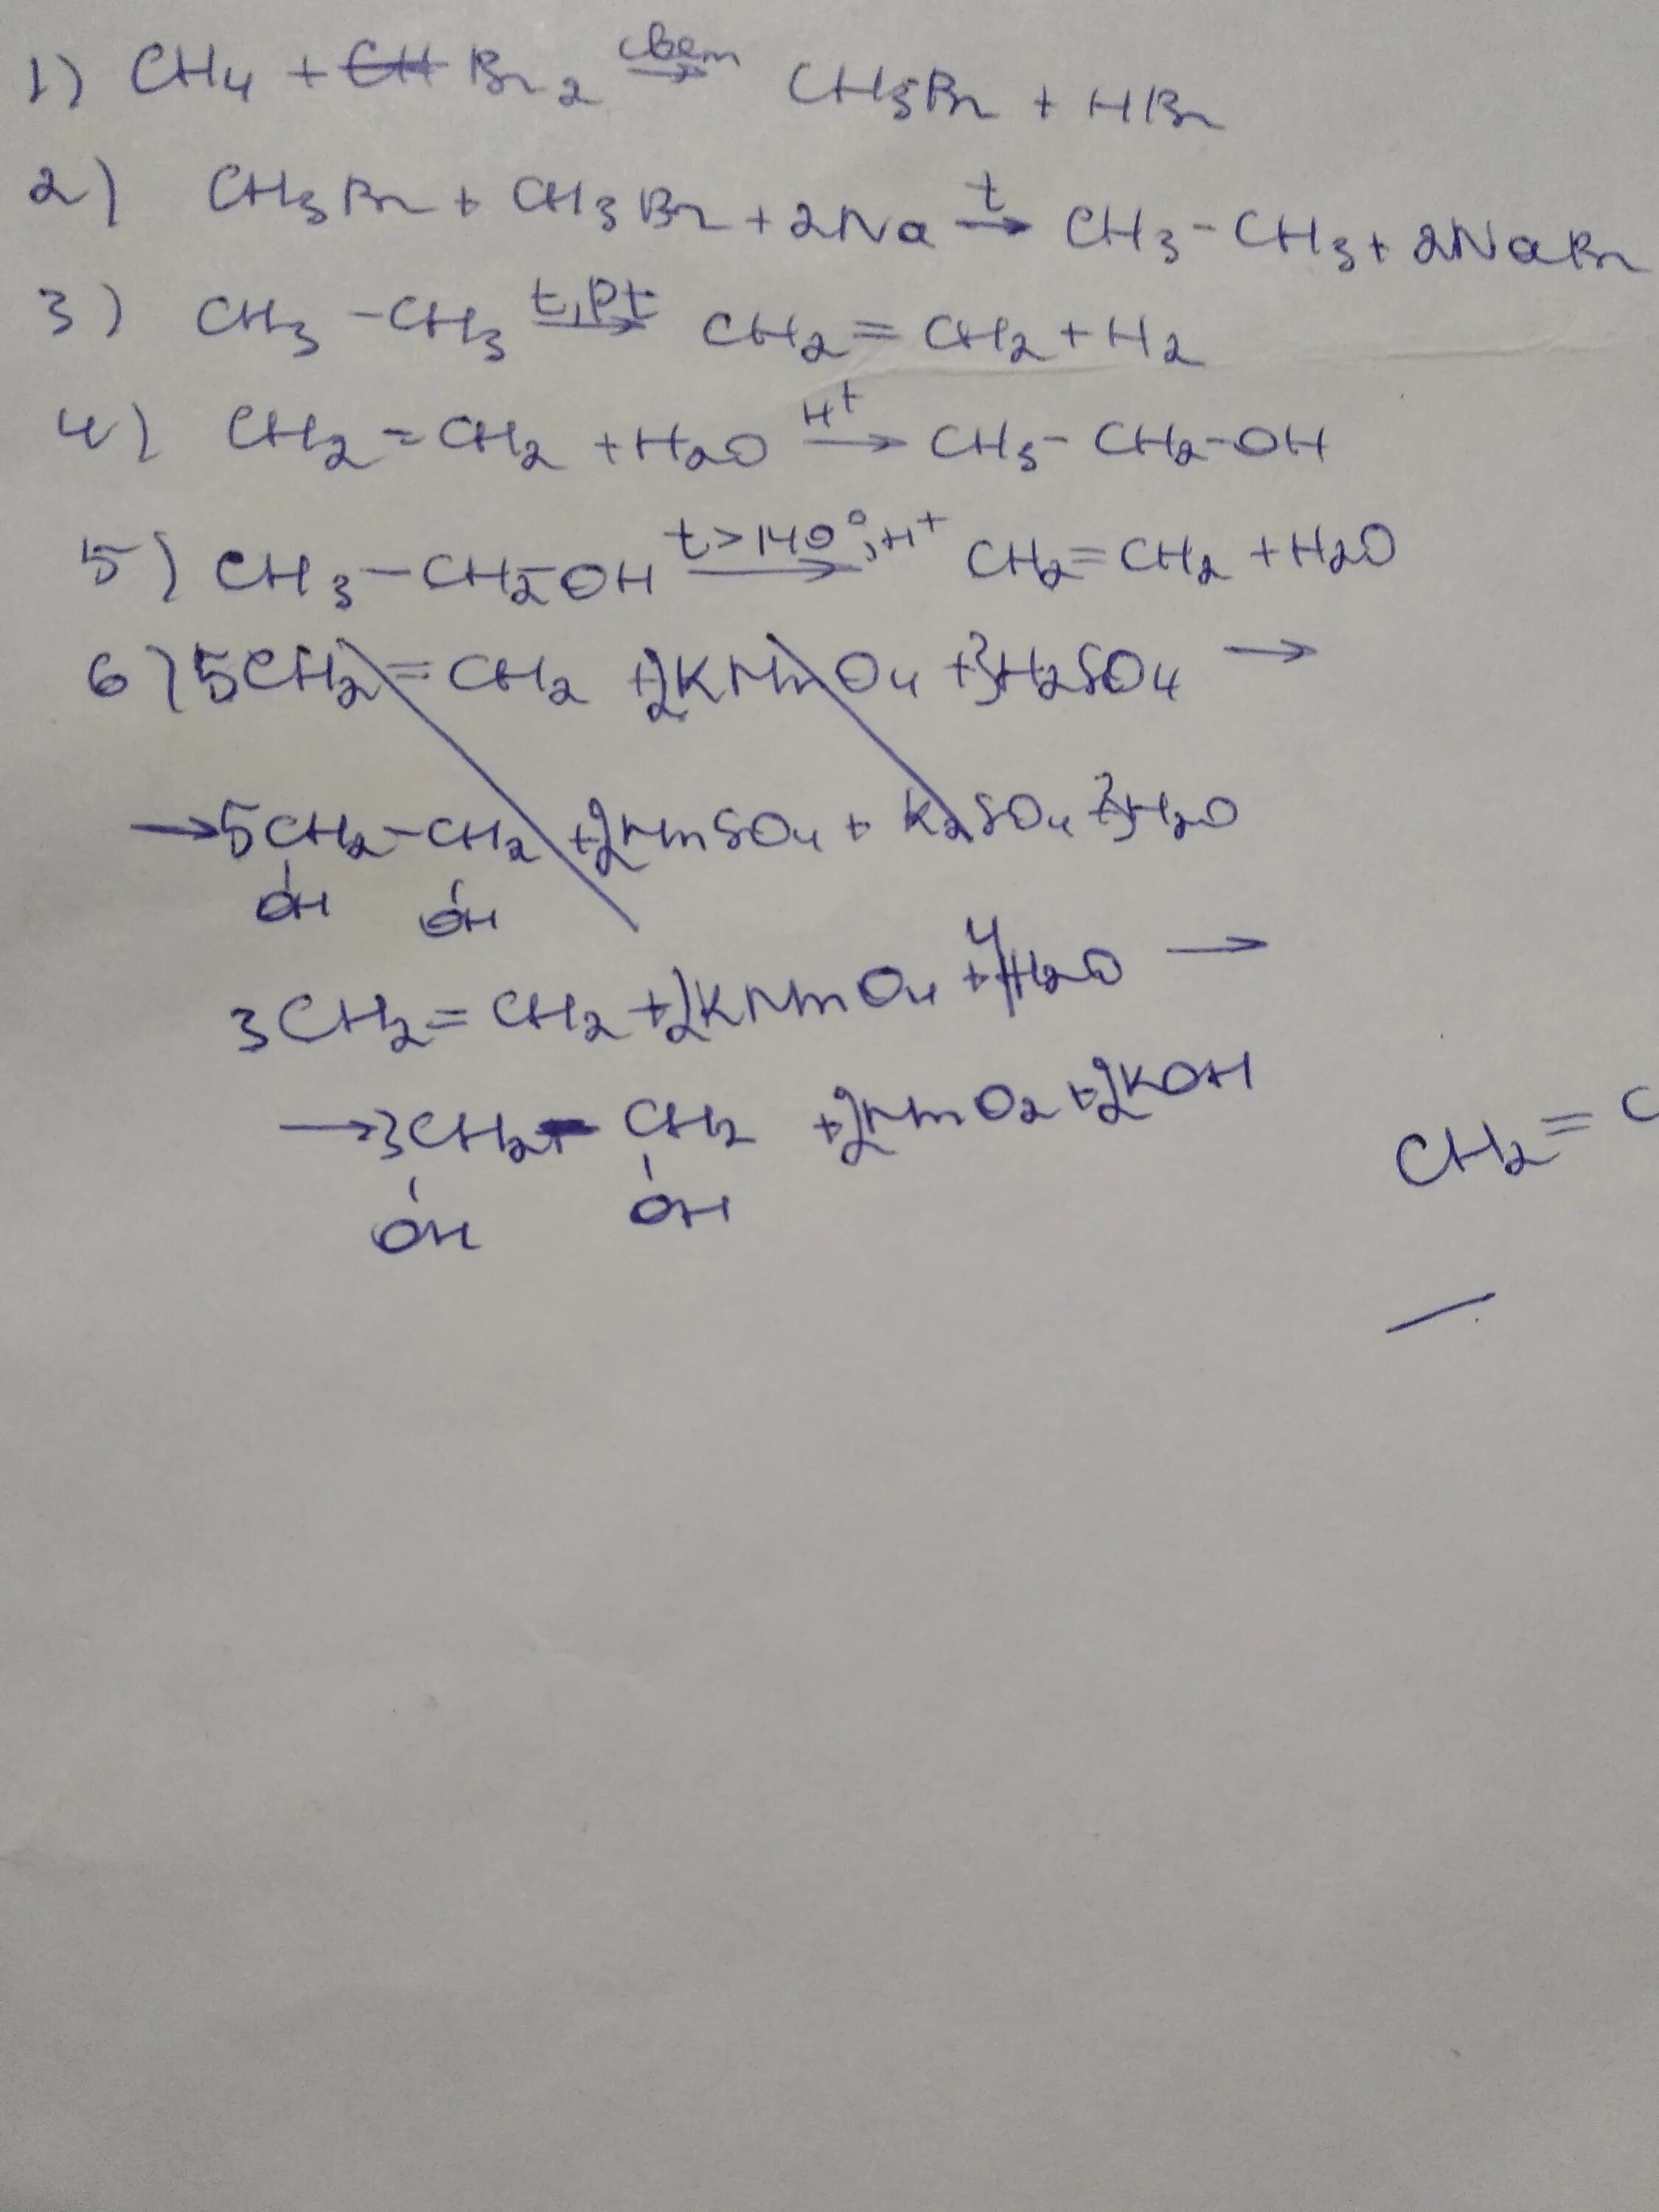 1) CH4 + CH Br2 свет → CH3Br + HBr
2) CH3Br + CH3Br + 2Na t → CH3-CH3 + 2NaBr
3) CH3-CH3 t, Pt → CH2=CH2 + H2
4) CH2=CH2 + H2O H+ → CH3-CH2-OH
5) CH3-CH2-OH t>140°, H+ → CH2=CH2 + H2O
6) 5CH2=CH2 + 2KMnO4 + 3H2SO4 →
→ 5CH2-CH2 + 2MnSO4 + K2SO4 + 3H2O
OH OH
3CH2=CH2 + 2KMnO4 + 4H2O →
→ 3CH2-CH2 + 2MnO2 + 2KOH
OH OH
CH2=C